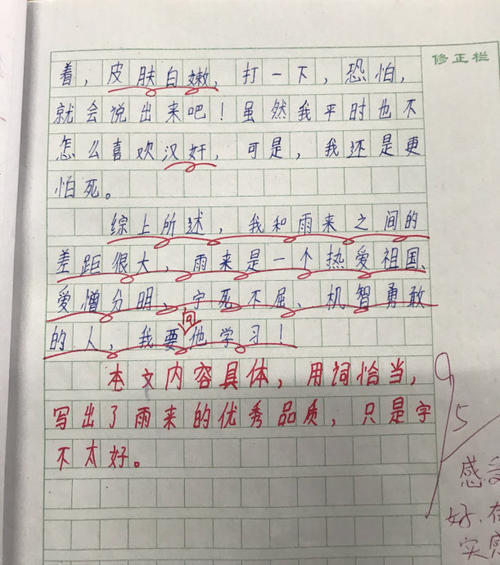 修正栏
着，皮肤白嫩，打一下，恐怕，
就会说出来吧！虽然我平时也不
怎么喜欢汉奸，可是，我还是更
怕死。
综上所述，我和雨来之间的
差距很大，雨来是一个热爱祖国、
爱憎分明、宁死不屈、机智勇敢
的人，我要向他学习！
本文内容具体，用词恰当，
写出了雨来的优秀品质，只是字
不太好。
95
感受
好，在
实感